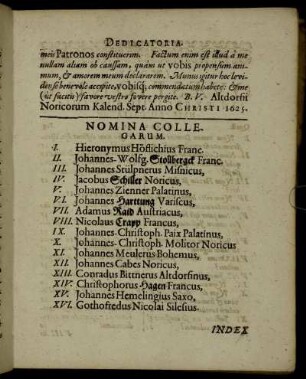 DEDICATORIA.
meis Patronos constituerem. Factum enim est illud à me
nullam aliam ob caussam, quàm ut vobis propensum ani-
mum, & amorem meum declararem. Munus igitur hoc levi-
dense benevole accipite, vobisq́; commendatum habete: & me
(ut facitis) favore vestro fovere pergite. B. V. Altdorfii
Noricorum Kalend. Sept. Anno CHRISTI 1625.
NOMINA COLLE-
GARUM.
I. Hieronymus Höflichius Franc.
II. Johannes-Wolfg. Stollbergck Franc.
III. Johannes Stülpnerus Misnicus,
IV. Jacobus Schiller Noricus,
V. Johannes Zienner Palatinus,
VI. Johannes Harttung Variscus,
VII. Adamus Raid Austriacus,
VIII. Nicolaus Crapp Francus,
IX. Johannes-Christoph. Paix Palatinus,
X. Johannes-Christoph. Molitor Noricus
XI. Johannes Meulerus Bohemus,
XII. Johannes Cabes Noricus,
XIII. Conradus Bittnerus Altdorfinus,
XIV. Christophorus Hagen Francus,
XV. Johannes Hemelingius Saxo,
XVI. Gothofredus Nicolai Silesius.
INDEX